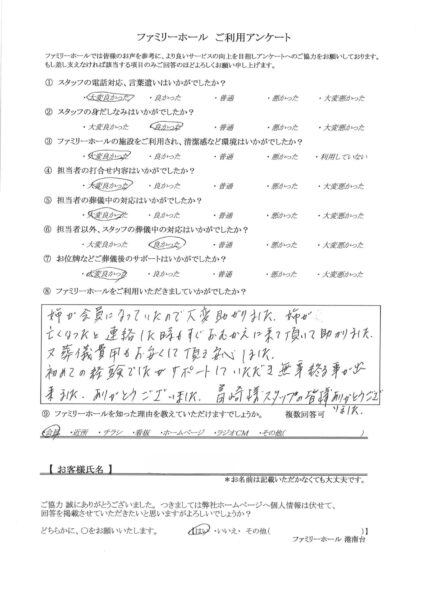 ファミリーホール　ご利用アンケート
ファミリーホールでは皆様のお声を参考に、より良いサービスの向上を目指しアンケートへのご協力をお願いしております。
もし差し支えなければ該当する項目のみご回答のほどよろしくお願い申し上げます。
① スタッフの電話対応、言葉遣いはいかがでしたか?
・大変良かった ・良かった ・普通 ・悪かった ・大変悪かった
② スタッフの身だしなみはいかがでしたか?
・大変良かった ・良かった ・普通 ・悪かった ・大変悪かった
③ ファミリーホールの施設をご利用され、清潔感など環境はいかがでしたか?
・大変良かった ・良かった ・普通 ・悪かった ・利用していない
④ 担当者の打合せ内容はいかがでしたか?
・大変良かった ・良かった ・普通 ・悪かった ・大変悪かった
⑤ 担当者の葬儀中の対応はいかがでしたか?
・大変良かった ・良かった ・普通 ・悪かった ・大変悪かった
⑥ 担当者以外、スタッフの葬儀中の対応はいかがでしたか?
・大変良かった ・良かった ・普通 ・悪かった ・大変悪かった
⑦ お位牌などご葬儀後のサポートはいかがでしたか?
・大変良かった ・良かった ・普通 ・悪かった ・大変悪かった
⑧ ファミリーホールをご利用いただきましていかがでしたか?
姉が会員になっていたので大変助かりました。姉が
亡くなったと連絡した時もすぐおむかえに来て頂いて助かりました。
又葬儀費用もお安くして頂き安心しました。
初めての経験でしたがサポートしていただき無事終る事が出
来ました。ありがとうございました。 様スタッフの皆様ありがとうござ
いました。
⑨ ファミリーホールを知った理由を教えていただけますでしょうか。 複数回答可
・会員 ・近所 ・チラシ ・看板 ・ホームページ ・ラジオCM ・その他( )
【 お客様氏名 】
＊お名前は記載いただかなくても大丈夫です。
ご協力 誠にありがとうございました。 つきましては弊社ホームページへ個人情報は伏せて、
回答を掲載させていただきたいと思いますがよろしいでしょうか?
どちらかに、○をお願いいたします。 【はい ・いいえ・ その他( )】
ファミリーホール 港南台